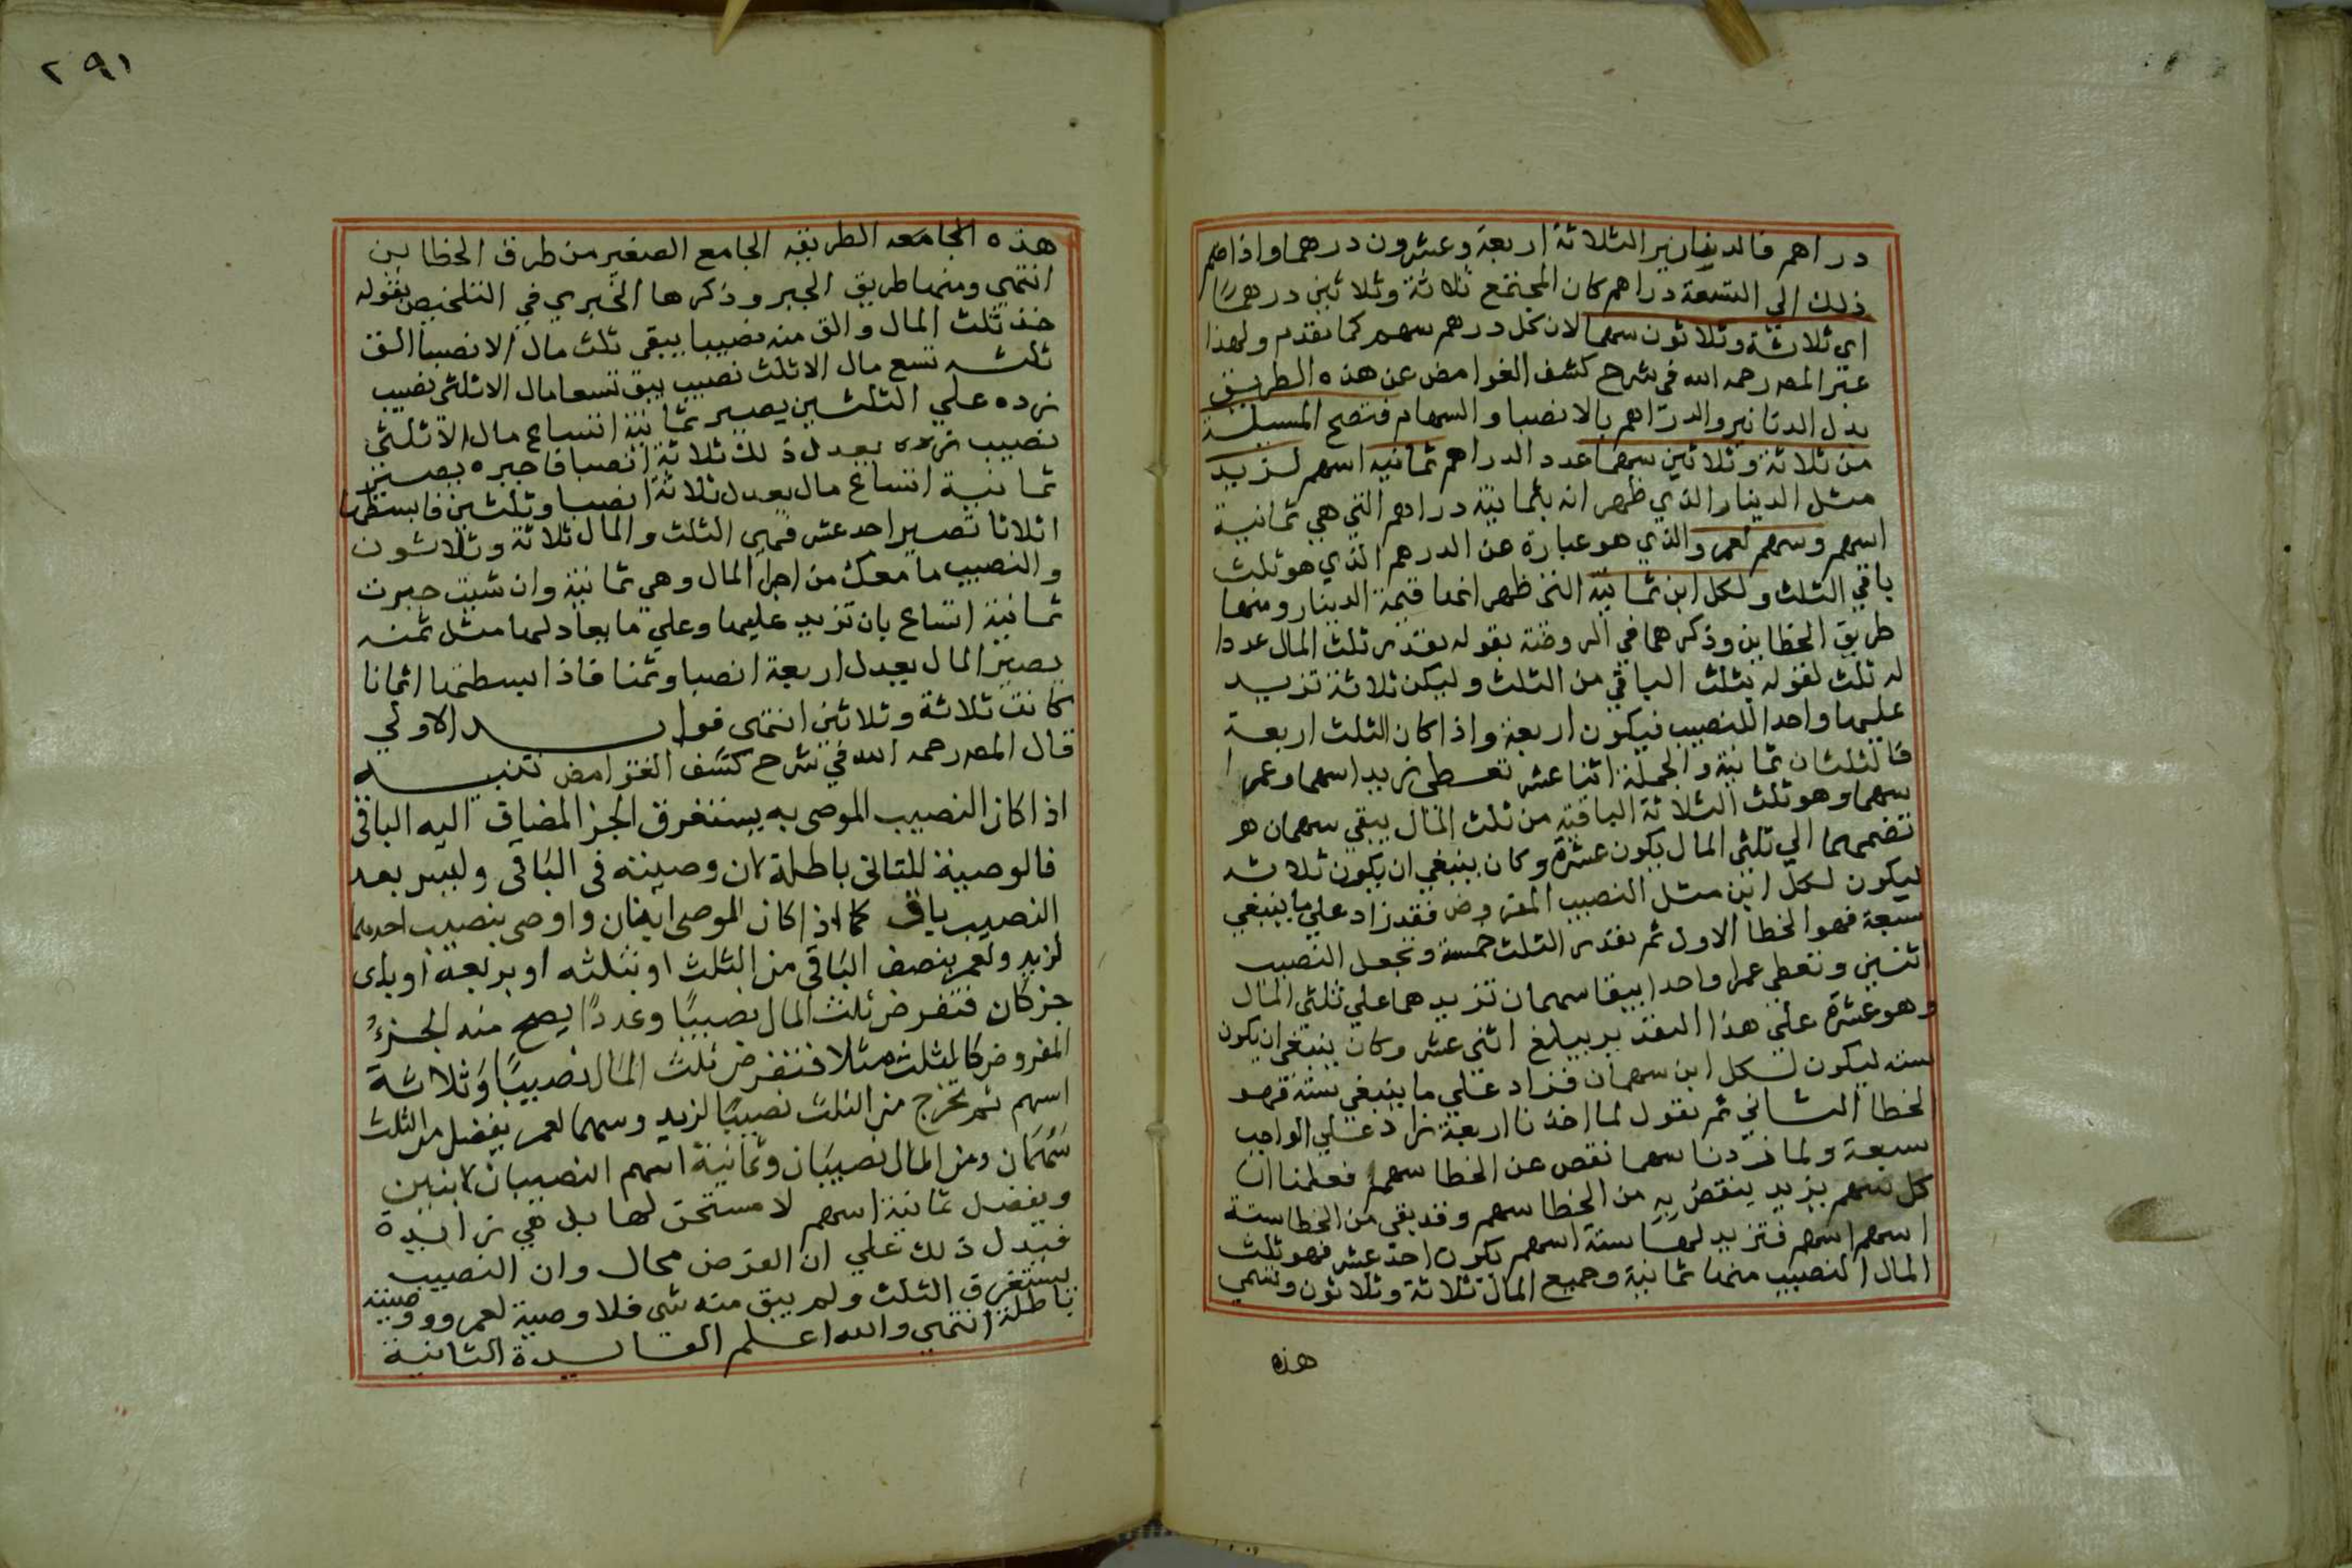 دراهم فالدنانير الثلاثة اربعة وعشرون درهما واذا ضم
ذلك الي التسعة دراهم كان المجتمع ثلاثة وثلاثين درهما
اي ثلاثة وثلاثون سهما لان كل درهم سهم كما تقدم ولهذا
عبر المصر رحمه الله في شرح كشف الغوامض عن هذه الطريق
بدل الدنانير والدراهم بالانصبا والسهام فتصح المسيلة
من ثلاثة وثلاثين سهما عدد الدراهم ثمانية اسهم لزيد
مثل الدينار الذي ظهر انه بثمانية دراهم التي هي ثمانية
اسهم وسهم لعمرو الذي هو عبارة عن الدرهم الذي هو ثلث
باقي الثلث ولكل ابن ثمانية التي ظهر انها قيمة الدينار ومنها
طريق الخطاين وذكرهما في الروضة بقوله يقدر ثلث المال عددا
له ثلث لقوله بثلث الباقي من الثلث وليكن ثلاثة تزيد
عليها واحدا للنصيب فيكون اربعة واذا كان الثلث اربعة
فالثلثان ثمانية والجملة اثنا عشر تعطي زيدا سهما وعمرا
سهما وهو ثلث الثلاثة الباقية من ثلث المال يبقي سهمان هر
تضمهما الي ثلثي المال يكون عشرة وكان ينبغي ان يكون ثلاثة
ليكون لكل ابن مثل النصيب المفروض فقد زاد علي ما ينبغي
سبعة فهو الخطا الاول ثم يقدر الثلث خمسة ونجعل النصيب
اثنين ونعطي عمرا واحدا يبقا سهمان تزيدهما علي ثلثي المال
وهو عشرة علي هذا التقدير يبلغ اثني عشر وكان ينبغي ان يكون
سته ليكون لكل ابن سهمان فزاد علي ما ينبغي ستة فهو
الخطا الثاني ثم نقول لما اخذنا اربعة زاد علي الواجب
سبعة ولما زدنا سهما نقص عن الخطا سهم فعلمنا ان
كل سهم يزيد ينقص به من الخطا سهم وقد بقي من الخطا ستة
اسهم اسهم فتزيد لها ستة اسهم يكون احد عشر فهو ثلث
المال النصيب منها ثمانية وجميع المال ثلاثة وثلاثون وتسمي
هذه
٢٩١
هذه الجامعه الطريقه الجامع الصغير من طرق الخطاين
انتهي ومنها طريق الجبر وذكرها الخبري في التلخيص بقوله
خذ ثلث المال والق منه نصيبا يبقي ثلث مال الا نصيبا الق
ثلثه تسع مال الا ثلث نصيب يبق تسعا مال الا ثلثي نصيب
زده علي الثلثين يصير ثمانية اتساع مال الا ثلثي
نصيب يعدل ذلك ثلاثة انصبا فاجبره يصير
ثمانية اتساع مال يعدل ثلاثة انصبا وثلثين فابسطها
اثلاثا تصير احد عشر فهي الثلث والمال ثلاثة وثلاثون
والنصيب ما معك من اجزا المال وهي ثمانية وان شيت جبرت
ثمانية اتساع بان تزيد عليها وعلي ما يعادلها مثل ثمنه
يصير المال يعدل اربعة انصبا وثمنا فاذا ابسطتها اثمانا
كانت ثلاثة وثلاثين انتهي فوايد الاولي
قال المصر رحمه الله في شرح كشف الغوامض تنبيه
اذا كان النصيب الموصي به يستغرق الجز المضاف اليه الباقي
فالوصية للثاني باطلة لان وصيته في الباقي وليس بعد
النصيب باق كما اذا كان للموصي ابنان واوصي بنصيب احدهما
لزيد ولعمر بنصف الباقي من الثلث او بثلثه او بربعه او باي
جز كان فتفرض ثلث المال نصيبًا وعددًا يصح منه الجزءُ
المفروض كالثلث مثلا فتفرض ثلث المال نصيبًا وثلاثة
اسهم ثم تخرج من الثلث نصيبًا لزيد وسهما لعمر يفضل من الثلث
سهمان ومن المال نصيبان وثمانية اسهم النصيبان لابنين
ويفضل ثمانية اسهم لا مستحق لها بل هي زايدة
فيدل ذلك علي ان الفرض محال وان النصيب
يستغرق الثلث ولم يبق منه شي فلا وصية لعمرو ووصيته
باطلة انتهي والله اعلم الفايدة الثانية